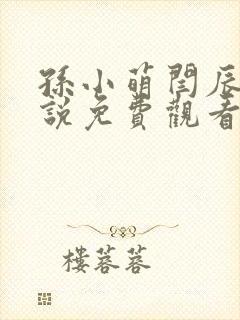 孫小萌閆辰
說免費觀看
樓蓉蓉